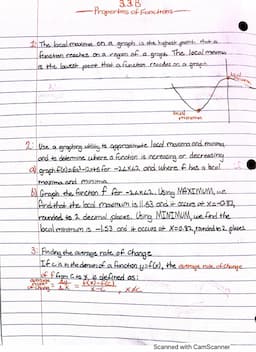 3.3B
Properties of Functions
1: The local maxima on a graph is the highest point that a
function reaches on a region of a graph. The local minima
is the lowest point that a function reaches on a graph
local
local
minimum
2: Use a graphing utility to approximate local maxima and minima
and to determine where a function is increasing or decreasing
a) graph f(x)=6x³-12x+5 for -2≤x≤2 and where f has a local
maxima and minima
b) Graph the function f for -2≤x≤2. Using MAXIMUM, we
find that the local maximum is 11.53 and it occurs at x=-0.82,
rounded to 2 decimal places. Using MINIMUM, we find the
local minimum is -1.53 and it occurs at x=0.82, rounded to 2 places
3: Finding the average rate of change
If c is in the domain of a function y=f(x), the average rate of change
of f from c to x is defined as:
average rate of change = Δy/Δx = f(x)-f(c)/x-c , x≠c
Scanned with CamScanner